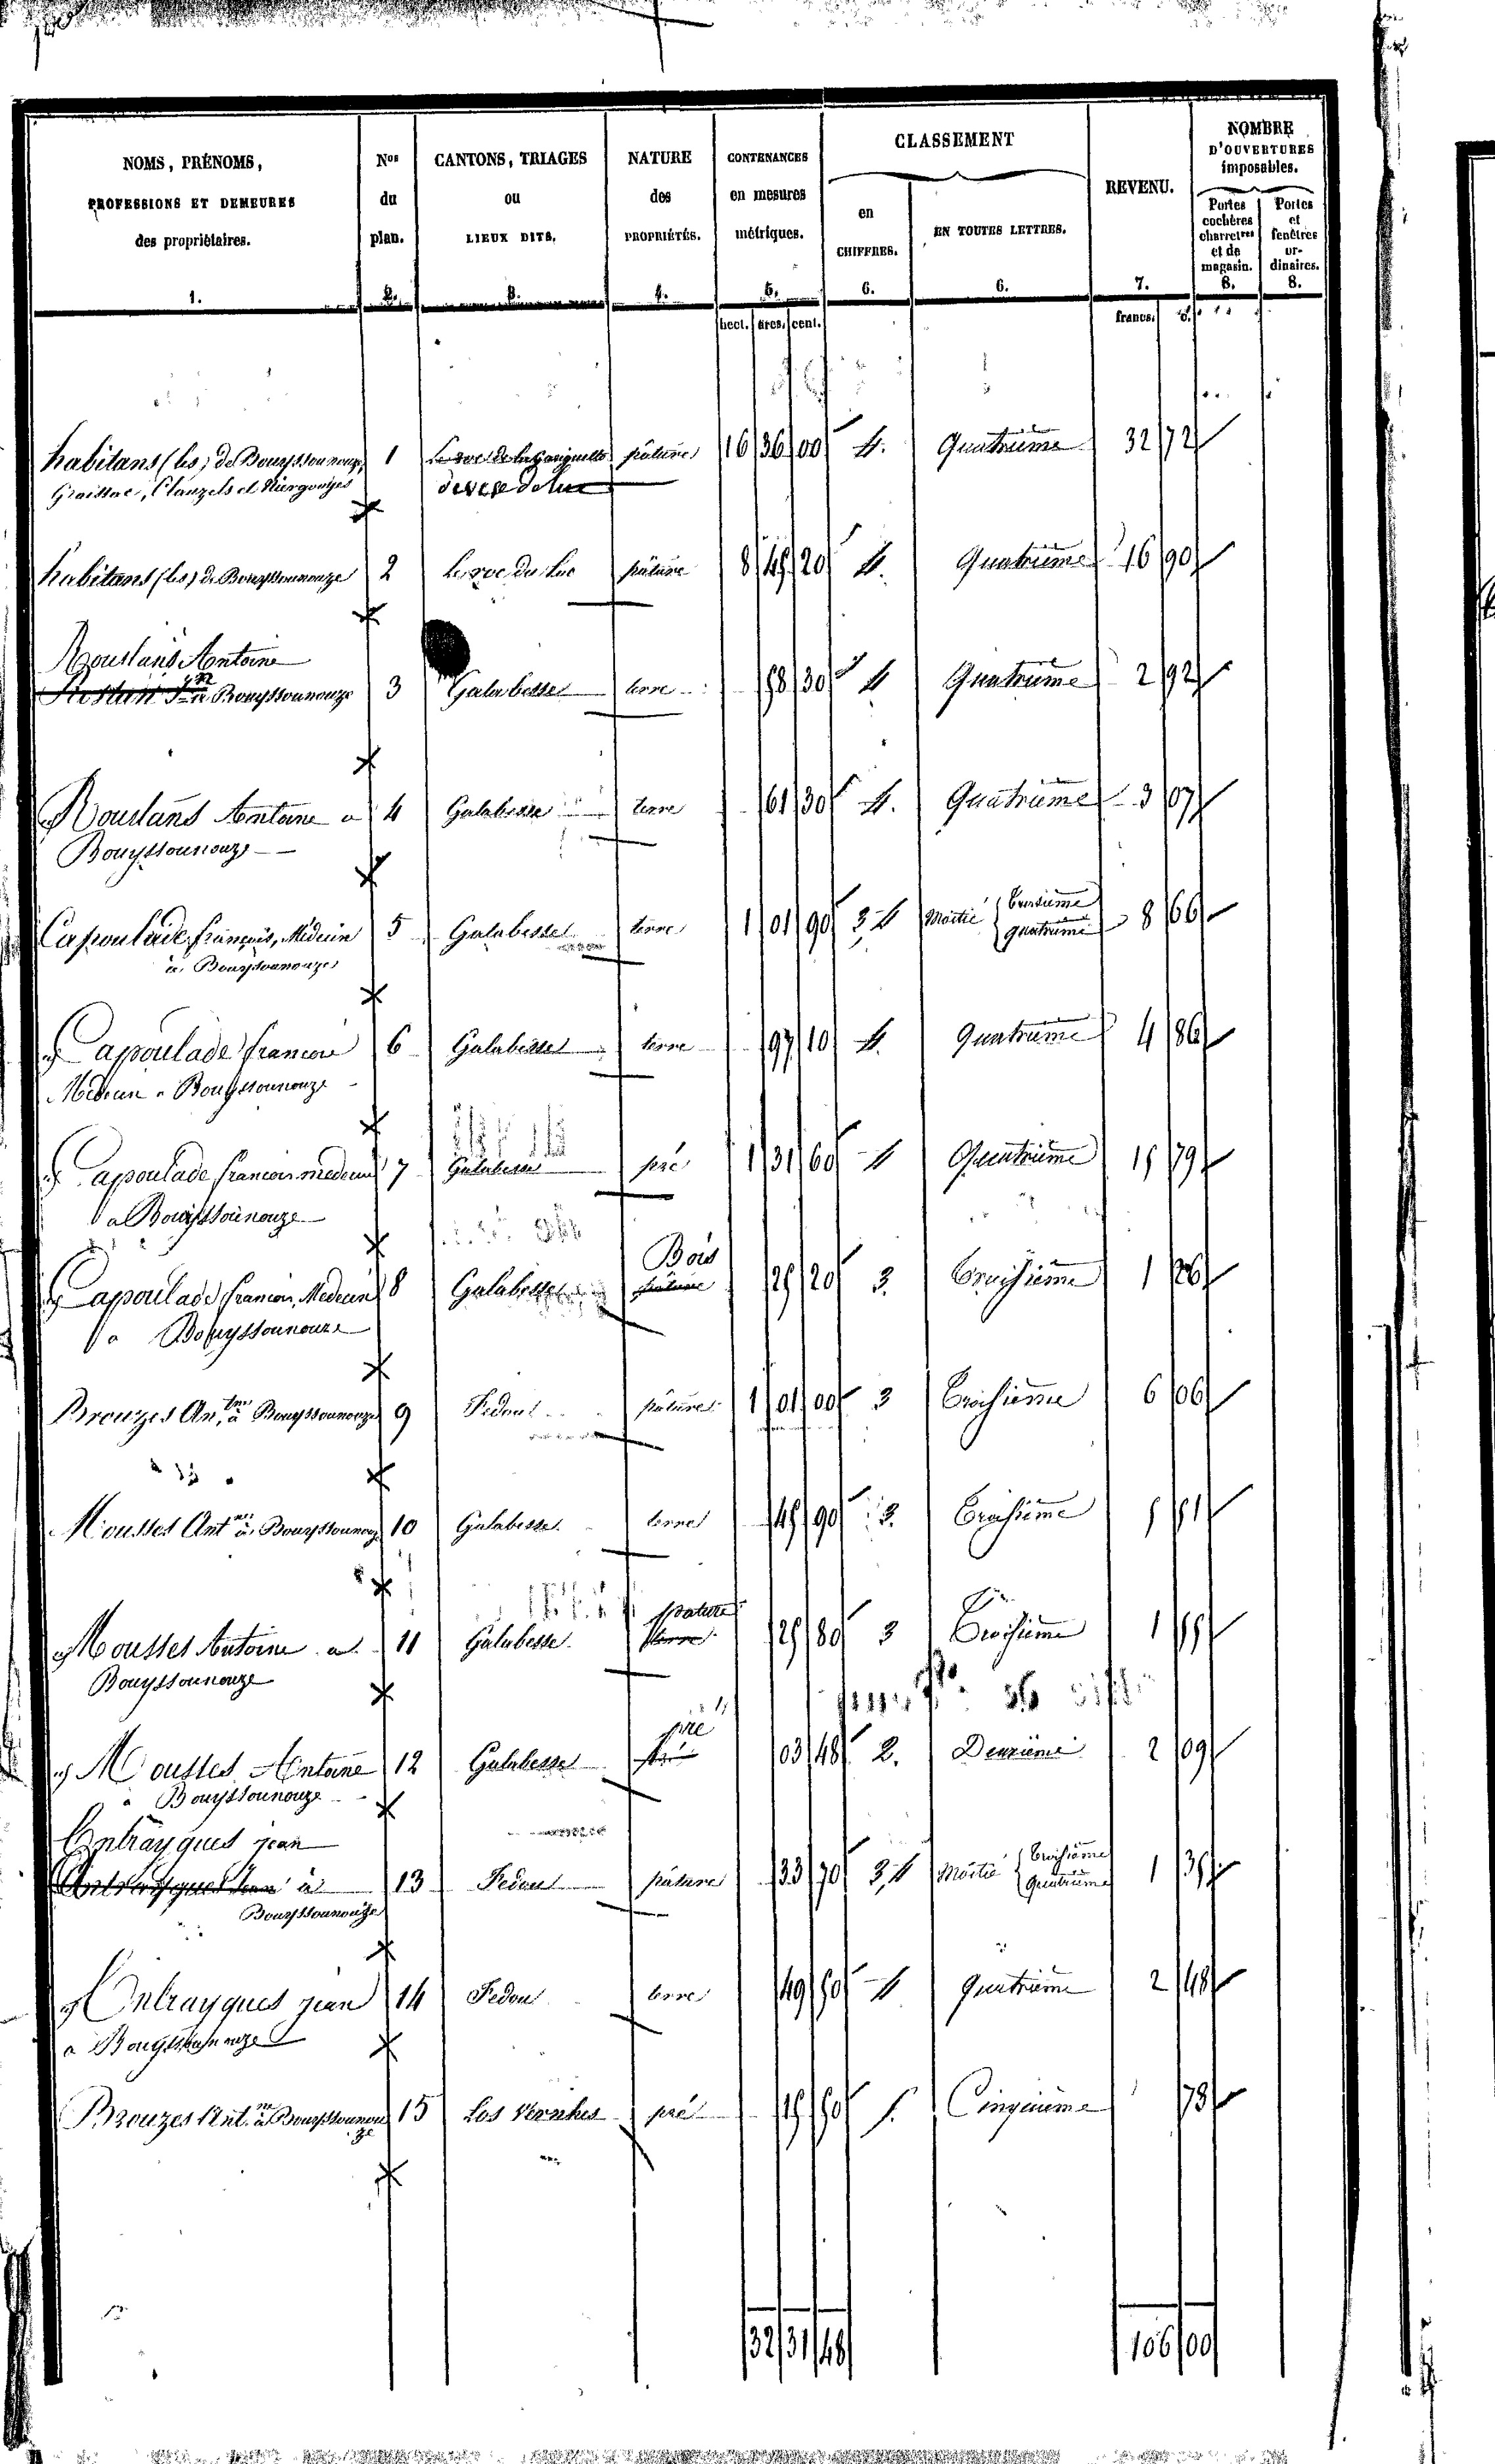 NOMS, PRÉNOMS, PROFESSIONS ET DEMEURES des propriétaires. 1.
Nos du plan. 2.
CANTONS, TRIAGES ou LIEUX DITS. 3.
NATURE des PROPRIÉTÉS. 4.
CONTENANCES en mesures métriques. 5.
CLASSEMENT
en CHIFFRES. 6.
EN TOUTES LETTRES. 6.
REVENU. 7.
NOMBRE D'OUVERTURES imposables.
Portes cochères charretres et de magasin. 8.
Portes et fenêtres ordinaires. 8.
hect. ares. cent.
francs. c.
habitans (les) de Bouyssounouze, 1 pâture 16 36 00 4. Quatrième 32 72
Graissac, Clauzels et
habitans (les) de Bouyssounouze 2 Le roc du Luc pâture 8 45 20 4. Quatrième 16 90
Roustans Antoine
à Bouyssounouze 3 Galabesse terre 58 30 4 Quatrième 2 92
Roustans Antoine a 4 Galabesse terre 61 30 4. Quatrième 3 07
Bouyssounouze
Capoulade François, Médecin 5 Galabesse terre 1 01 90 3,4 Moitié { troisième quatrième 8 66
à Bouyssounouze
Capoulade francois 6 Galabesse terre 97 10 4. Quatrième 4 86
Médecin a Bouyssounouze
Capoulade francois medecin 7 Galabesse pré 1 31 60 4 Quatrième 15 79
a Bouyssounouze
Bois
Capoulade francois Medecin 8 Galabesse pâture 25 20 3. Troisième 1 26
a Bouyssounouze
Brouzes Antne à Bouyssounouze 9 Fedou pâture 1 01 00 3 Troisième 6 06
Mousses Antne à Bouyssounouze 10 Galabesse terre 45 90 3. Troisième 5 51
pature
Mousses Antoine a 11 Galabesse terre 25 80 3 Troisième 1 55
Bouyssounouze
pré
Mousses Antoine 12 Galabesse 03 48 2. Deuxième 2 09
a Bouyssounouze
Entraygues jean
à 13 Fedou pâture 33 70 3,4 Moitié { Troisième Quatrième 1 35
Bouyssounouze
Entraygues jean 14 Fedou terre 49 50 4 Quatrième 2 48
a Bouyssounouze
Brouzes Ant. à Bouyssounouze 15 Los Vernhes pré 15 50 5. Cinquième 78
32 31 48 106 00